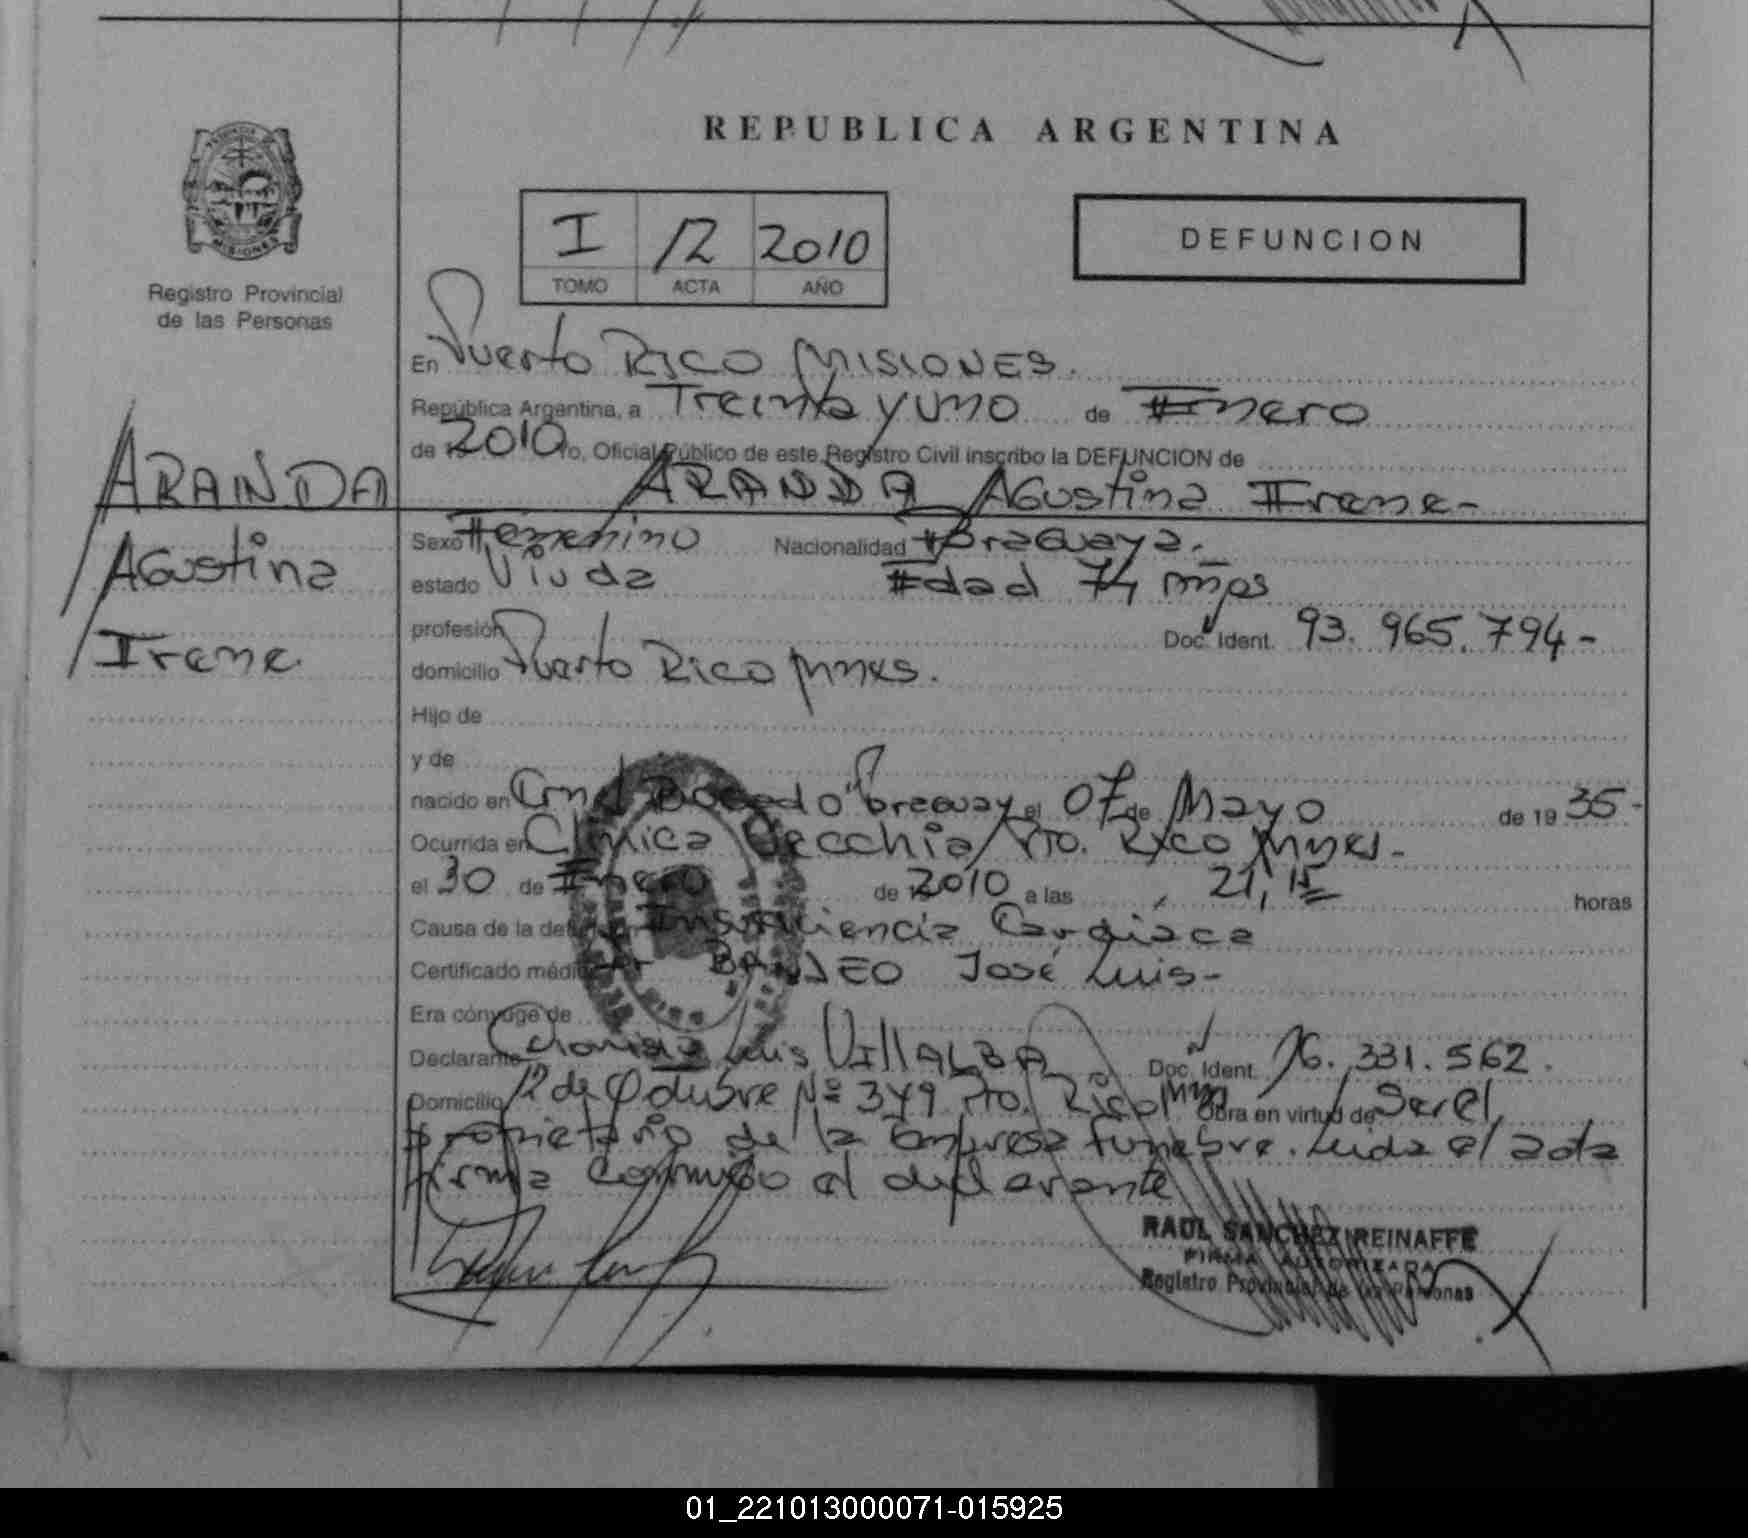 REPUBLICA ARGENTINA
MISIONES
Registro Provincial
de las Personas
I 12 2010
TOMO ACTA AÑO
DEFUNCION
En Puerto Rico MISIONES.
República Argentina, a Treinta y uno de Enero
de 2010 Yo, Oficial Público de este Registro Civil inscribo la DEFUNCION de
ARANDA Agustina Irene-
ARANDA
Agustina
Irene
Sexo Femenino Nacionalidad Paraguaya.
estado Viuda Edad 74 años
profesión Doc. Ident. 93.965.794-
domicilio Puerto Rico Mnes.
Hijo de
y de
nacido en Crnel Bogado Paraguay el 07 de Mayo de 1935-
Ocurrida en Clinica Vecchia Pto. Rico Mnes.-
el 30 de Enero de 2010 a las 21,15 horas
Causa de la Insuficiencia Cardiaca
Certificado médico José Luis-
Era cónyuge de
Declarante Luis VIllALBA Doc. Ident. 16.331.562.
Domicilio 12 de Octubre Nº 379 Pto. Rico Mnes Obra en virtud de Ser el
propietario de la Empresa funebre. Leida el acta
firma conmigo el declarante
RAUL SANCHEZ REINAFFE
FIRMA AUTORIZADA
Registro Provincial de las Personas
01_221013000071-015925